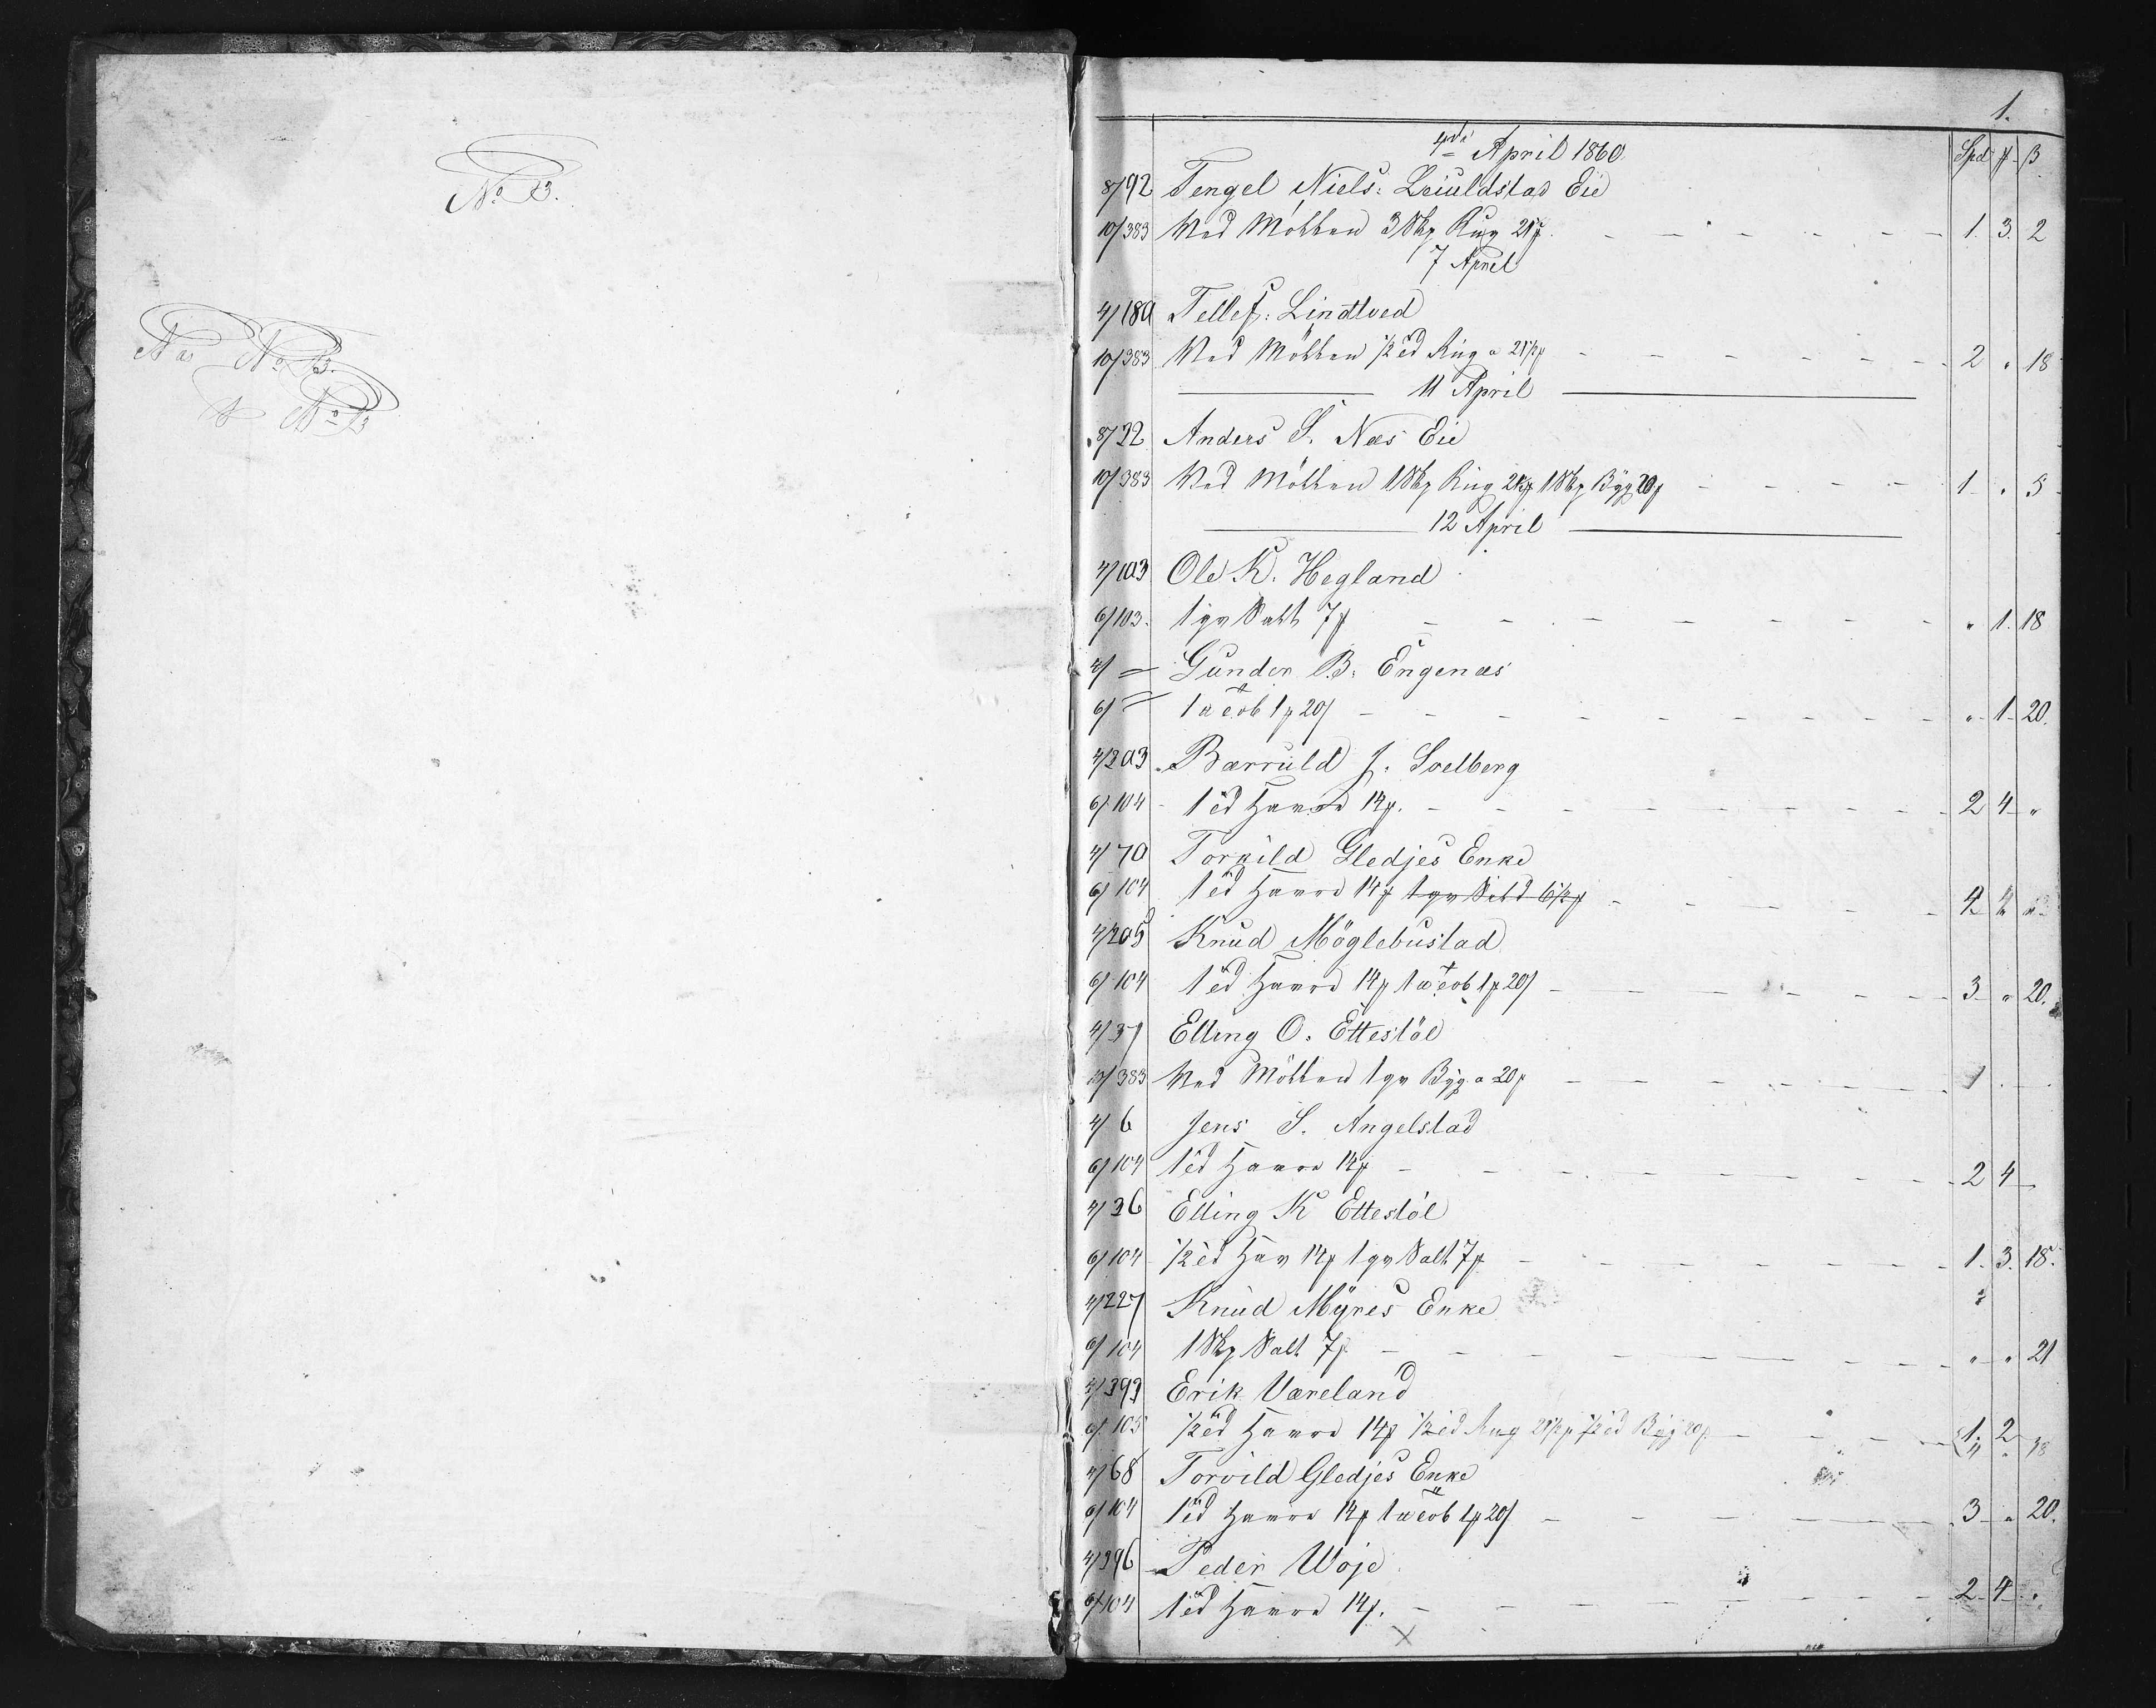 No. 13.
Næs No. 13.
No. 13
1.
4de April 1860.
Spd ꝟ β
8/92 Tengel Niels: Leiuldstad Eie
10/383 Ved Möllen 3 Skp Rug 21ꝟ 1. 3. 2
7 April
4/180 Tellef: Lindtved
10/383 Ved Möllen 1/2 td Rug a 21 1/2ꝟ 2 " 18
11 April
8/32 Anders S. Næs Eie
10/383 Ved Möllen 1 Skp Rug 21ꝟ 1 Skp Byg 20ꝟ 1 " 5
12 April
4/103 Ole K. Hegland
6/103. 1 qr Salt 7ꝟ " 1. 18
4/ = Gunder B: Engenæs
6/ = 1 20 " 1 20.
4/303 Bærruld J. Solberg
6/104 1 td Havre 14ꝟ. 2 4 "
4/70 Torvild Gledjes Enke
6/104 1 td Havre 14ꝟ 1 qr
4/205 Knud Möglebustad
6/104 1 td Havre 14ꝟ 1 20 3 " 20.
4/37 Elling O. Ettestöl
10/383 Ved Möllen 1 qr Byg a 20ꝟ 1
4/6 Jens S. Angelstad
6/104 1 td Havre 14ꝟ 2 4
4/36 Elling K Ettestöl
6/104 1/2 td Hav 14ꝟ 1 qr Salt 7ꝟ 1. 3. 18.
4/227 Knud Myres Enke
6/104 1 Skp Salt 7ꝟ " " 21
4/393 Erik Væreland
6/105 1/2 td Havre 14ꝟ 1/2 td Rug 21 1/2ꝟ 1/2 td Byg 20ꝟ
4/68 Torvild Gledjes Enke
6/104 1 td Havre 14ꝟ 1 20 3 " 20.
4/396 Peder Woje
6/104 1 td Havre 14ꝟ. 2 4 "